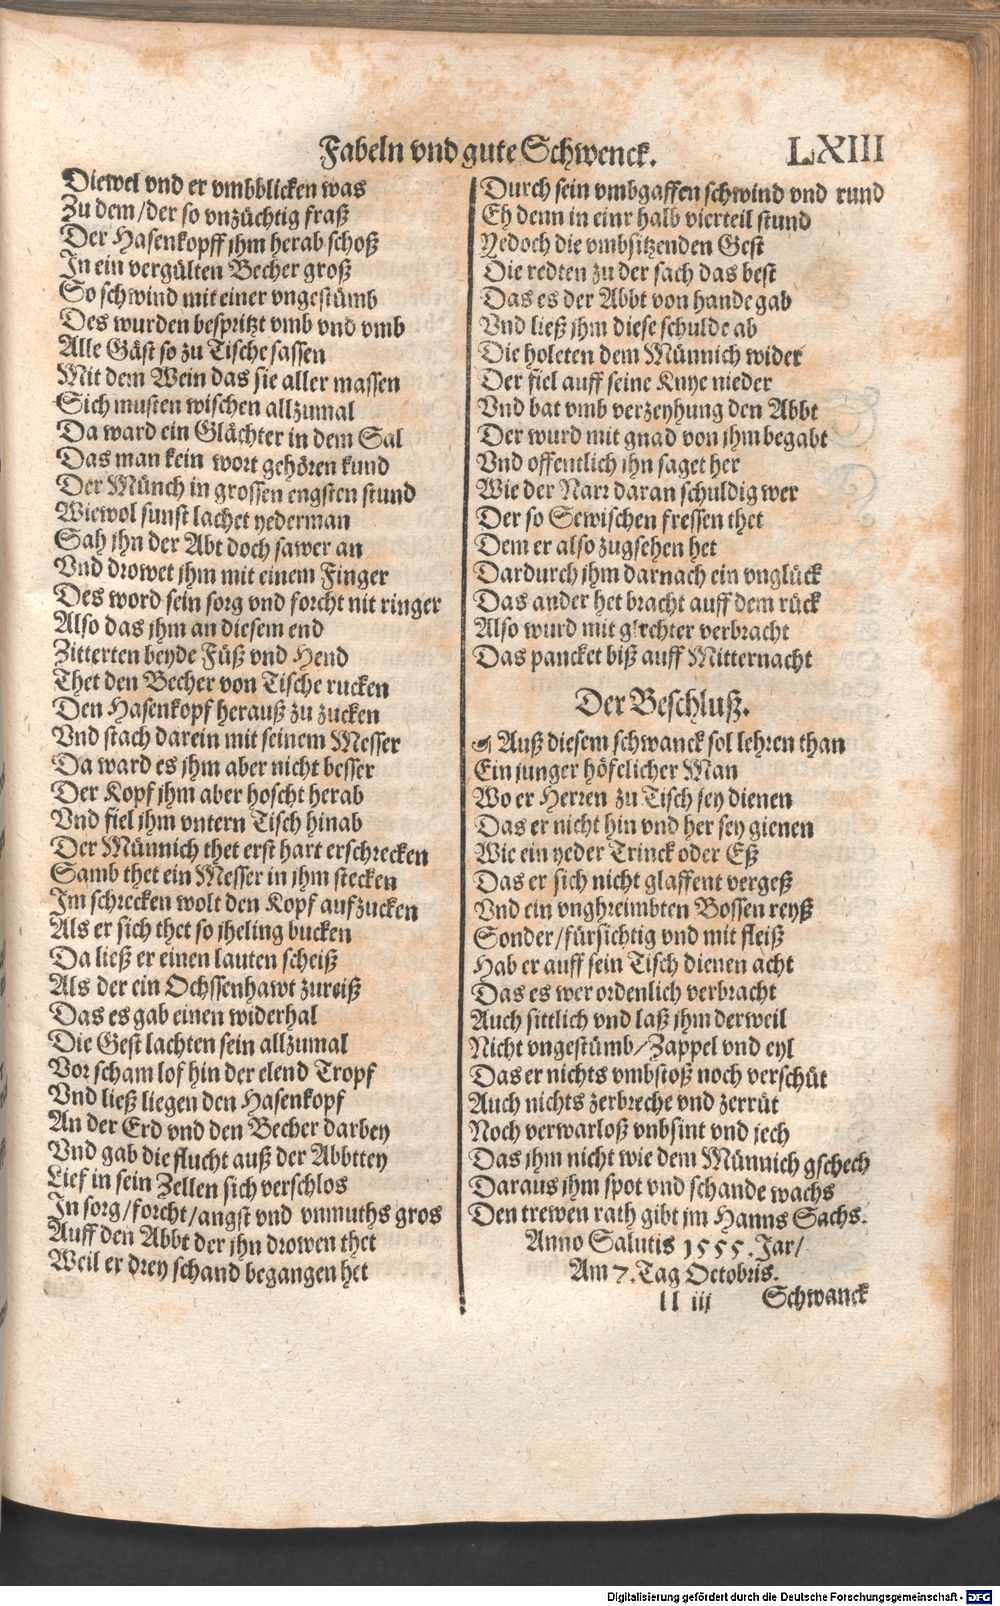 Fabeln vnd gute Schwenck. LXIII
Diewel vnd er vmbblicken was
Zu dem/der so vnzüchtig fraß
Der Hasenkopff jhm herab schoß
In ein vergülten Becher groß
So schwind mit einer vngestümb
Des wurden bespritzt vmb vnd vmb
Alle Gäst so zu Tische sassen
Mit dem Wein das sie aller massen
Sich musten wischen allzumal
Da ward ein Glächter in dem Sal
Das man kein wort gehören kund
Der Münch in grossen engsten stund
Wiewol sunst lachet yederman
Sah jhn der Abt doch sawer an
Vnd drowet jhm mit einem Finger
Des word sein sorg vnd forcht nit ringer
Also das jhm an diesem end
Zitterten beyde Füß vnd Hend
Thet den Becher von Tische rucken
Den Hasenkopf herauß zu zucken
Vnd stach darein mit seinem Messer
Da ward es jhm aber nicht besser
Der Kopf jhm aber hoscht herab
Vnd fiel jhm vntern Tisch hinab
Der Münnich thet erst hart erschrecken
Samb thet ein Messer in jhm stecken
Im schrecken wolt den Kopf aufzucken
Als er sich thet so jheling bucken
Da ließ er einen lauten scheiß
Als der ein Ochssenhawt zureiß
Das es gab einen widerhal
Die Gest lachten sein allzumal
Vor scham lof hin der elend Tropf
Vnd ließ liegen den Hasenkopf
An der Erd vnd den Becher darbey
Vnd gab die flucht auß der Abbttey
Lief in sein Zellen sich verschlos
In sorg/forcht/angst vnd vnmuths gros
Auff den Abbt der jhn drowen thet
Weil er drey schand begangen het
Durch sein vmbgaffen schwind vnd rund
Eh denn in einr halb vierteil stund
Yedoch die vmbsitzenden Gest
Die redten zu der sach das best
Das es der Abbt von hande gab
Vnd ließ jhm diese schulde ab
Die holeten dem Münnich wider
Der fiel auff seine Knye nieder
Vnd bat vmb verzeyhung den Abbt
Der wurd mit gnad von jhm begabt
Vnd offentlich jhn saget her
Wie der Narr daran schuldig wer
Der so Sewischen fressen thet
Dem er also zugsehen het
Dardurch jhm darnach ein vnglück
Das ander het bracht auff dem rück
Also wurd mit glechter verbracht
Das pancket biß auff Mitternacht
Der Beschluß.
Auß diesem schwanck sol lehren than
Ein junger höfelicher Man
Wo er Herren zu Tisch sey dienen
Das er nicht hin vnd her sey gienen
Wie ein yeder Trinck oder Eß
Das er sich nicht glaffent vergeß
Vnd ein vnghreimbten Bossen reyß
Sonder/fürsichtig vnd mit fleiß
Hab er auff sein Tisch dienen acht
Das es wer ordenlich verbracht
Auch sittlich vnd laß jhm derweil
Nicht vngestümb/Zappel vnd eyl
Das er nichts vmbstoß noch verschüt
Auch nichts zerbreche vnd zerrüt
Noch verwarloß vnbsint vnd jech
Das jhm nicht wie dem Münnich gschech
Daraus jhm spot vnd schande wachs
Den trewen rath gibt jm Hanns Sachs.
Anno Salutis 1555. Jar/
Am 7. Tag Octobris.
ll iij Schwanck
Digitalisierung gefördert durch die Deutsche Forschungsgemeinschaft - DFG